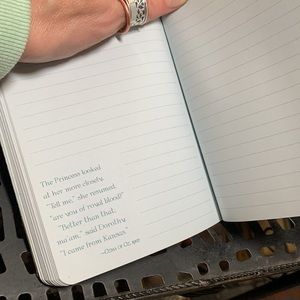 The Princess looked
at her more closely.
"Tell me," she resumed,
"are you of royal blood?"
"Better than that,
ma'am," said Dorothy.
"I came from Kansas."
—Ozma of Oz, 1907